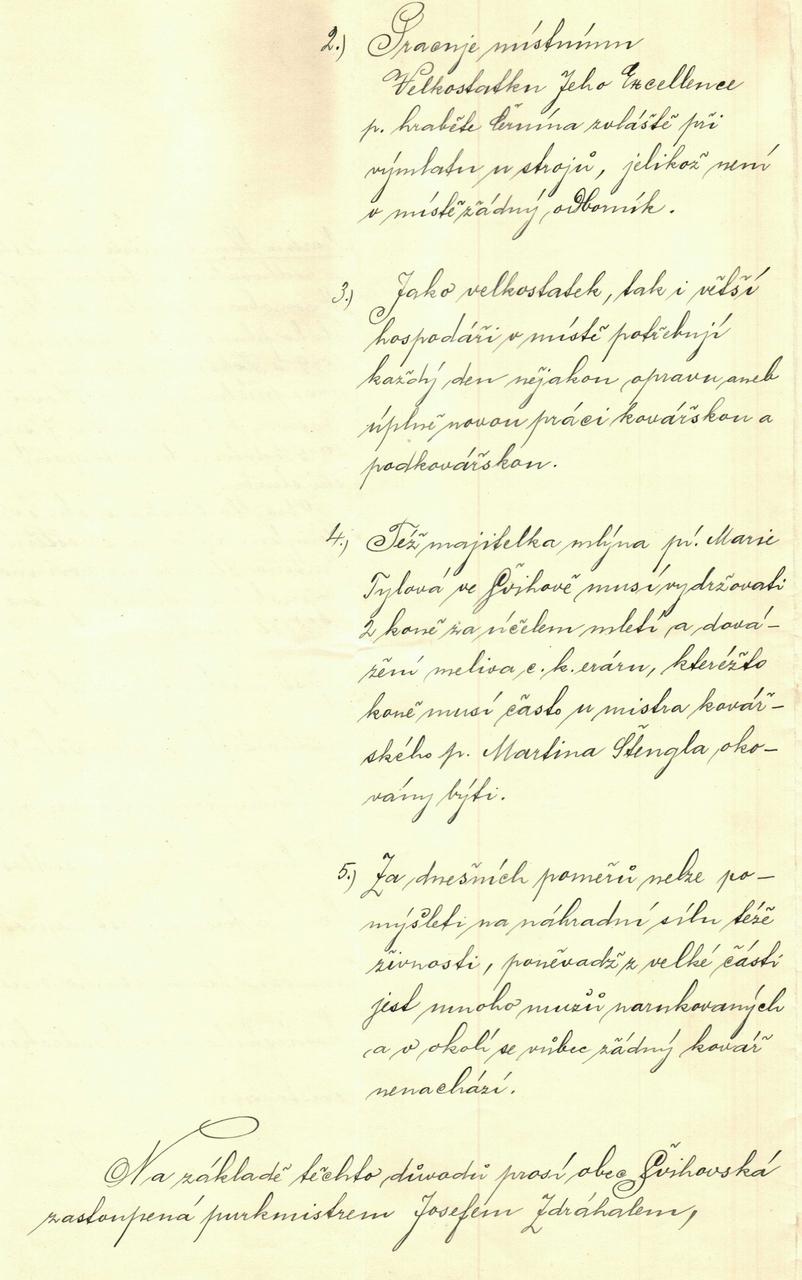 2.) Pracuje místnímu
Velkostatku Jeho Excellence
p. hraběte Černína zvláště při
výmlatu u strojů, jelikož není
v místě žádný odborník.
3.) Jako velkostatek, tak i větší
hospodáři v místě potřebují
každý den nějakou opravu aneb
úplně novou práci kovářskou a
podkovářskou.
4.) Též majitelka mlýna pí. Marie
Tylová ve Čvihově musí vydržovati
2 koně za účelem mletí a dová-
žení meliva c. k. eráru, kteréžto
koně musí často u mistra kovář-
ského p. Martina Štengla oko-
vány býti.
5.) Za dnešních poměrů nelze po-
mýšleti na náhradní sílu téže
živnosti, poněvadž z velké části
jest mnoho mužů narukovaných
a v okolí se vůbec žádný kovář
nenachází.
Na základě těchto důvodů prosí obec Čvihovská
zastoupená purkmistrem Josefem Zdráhalem,